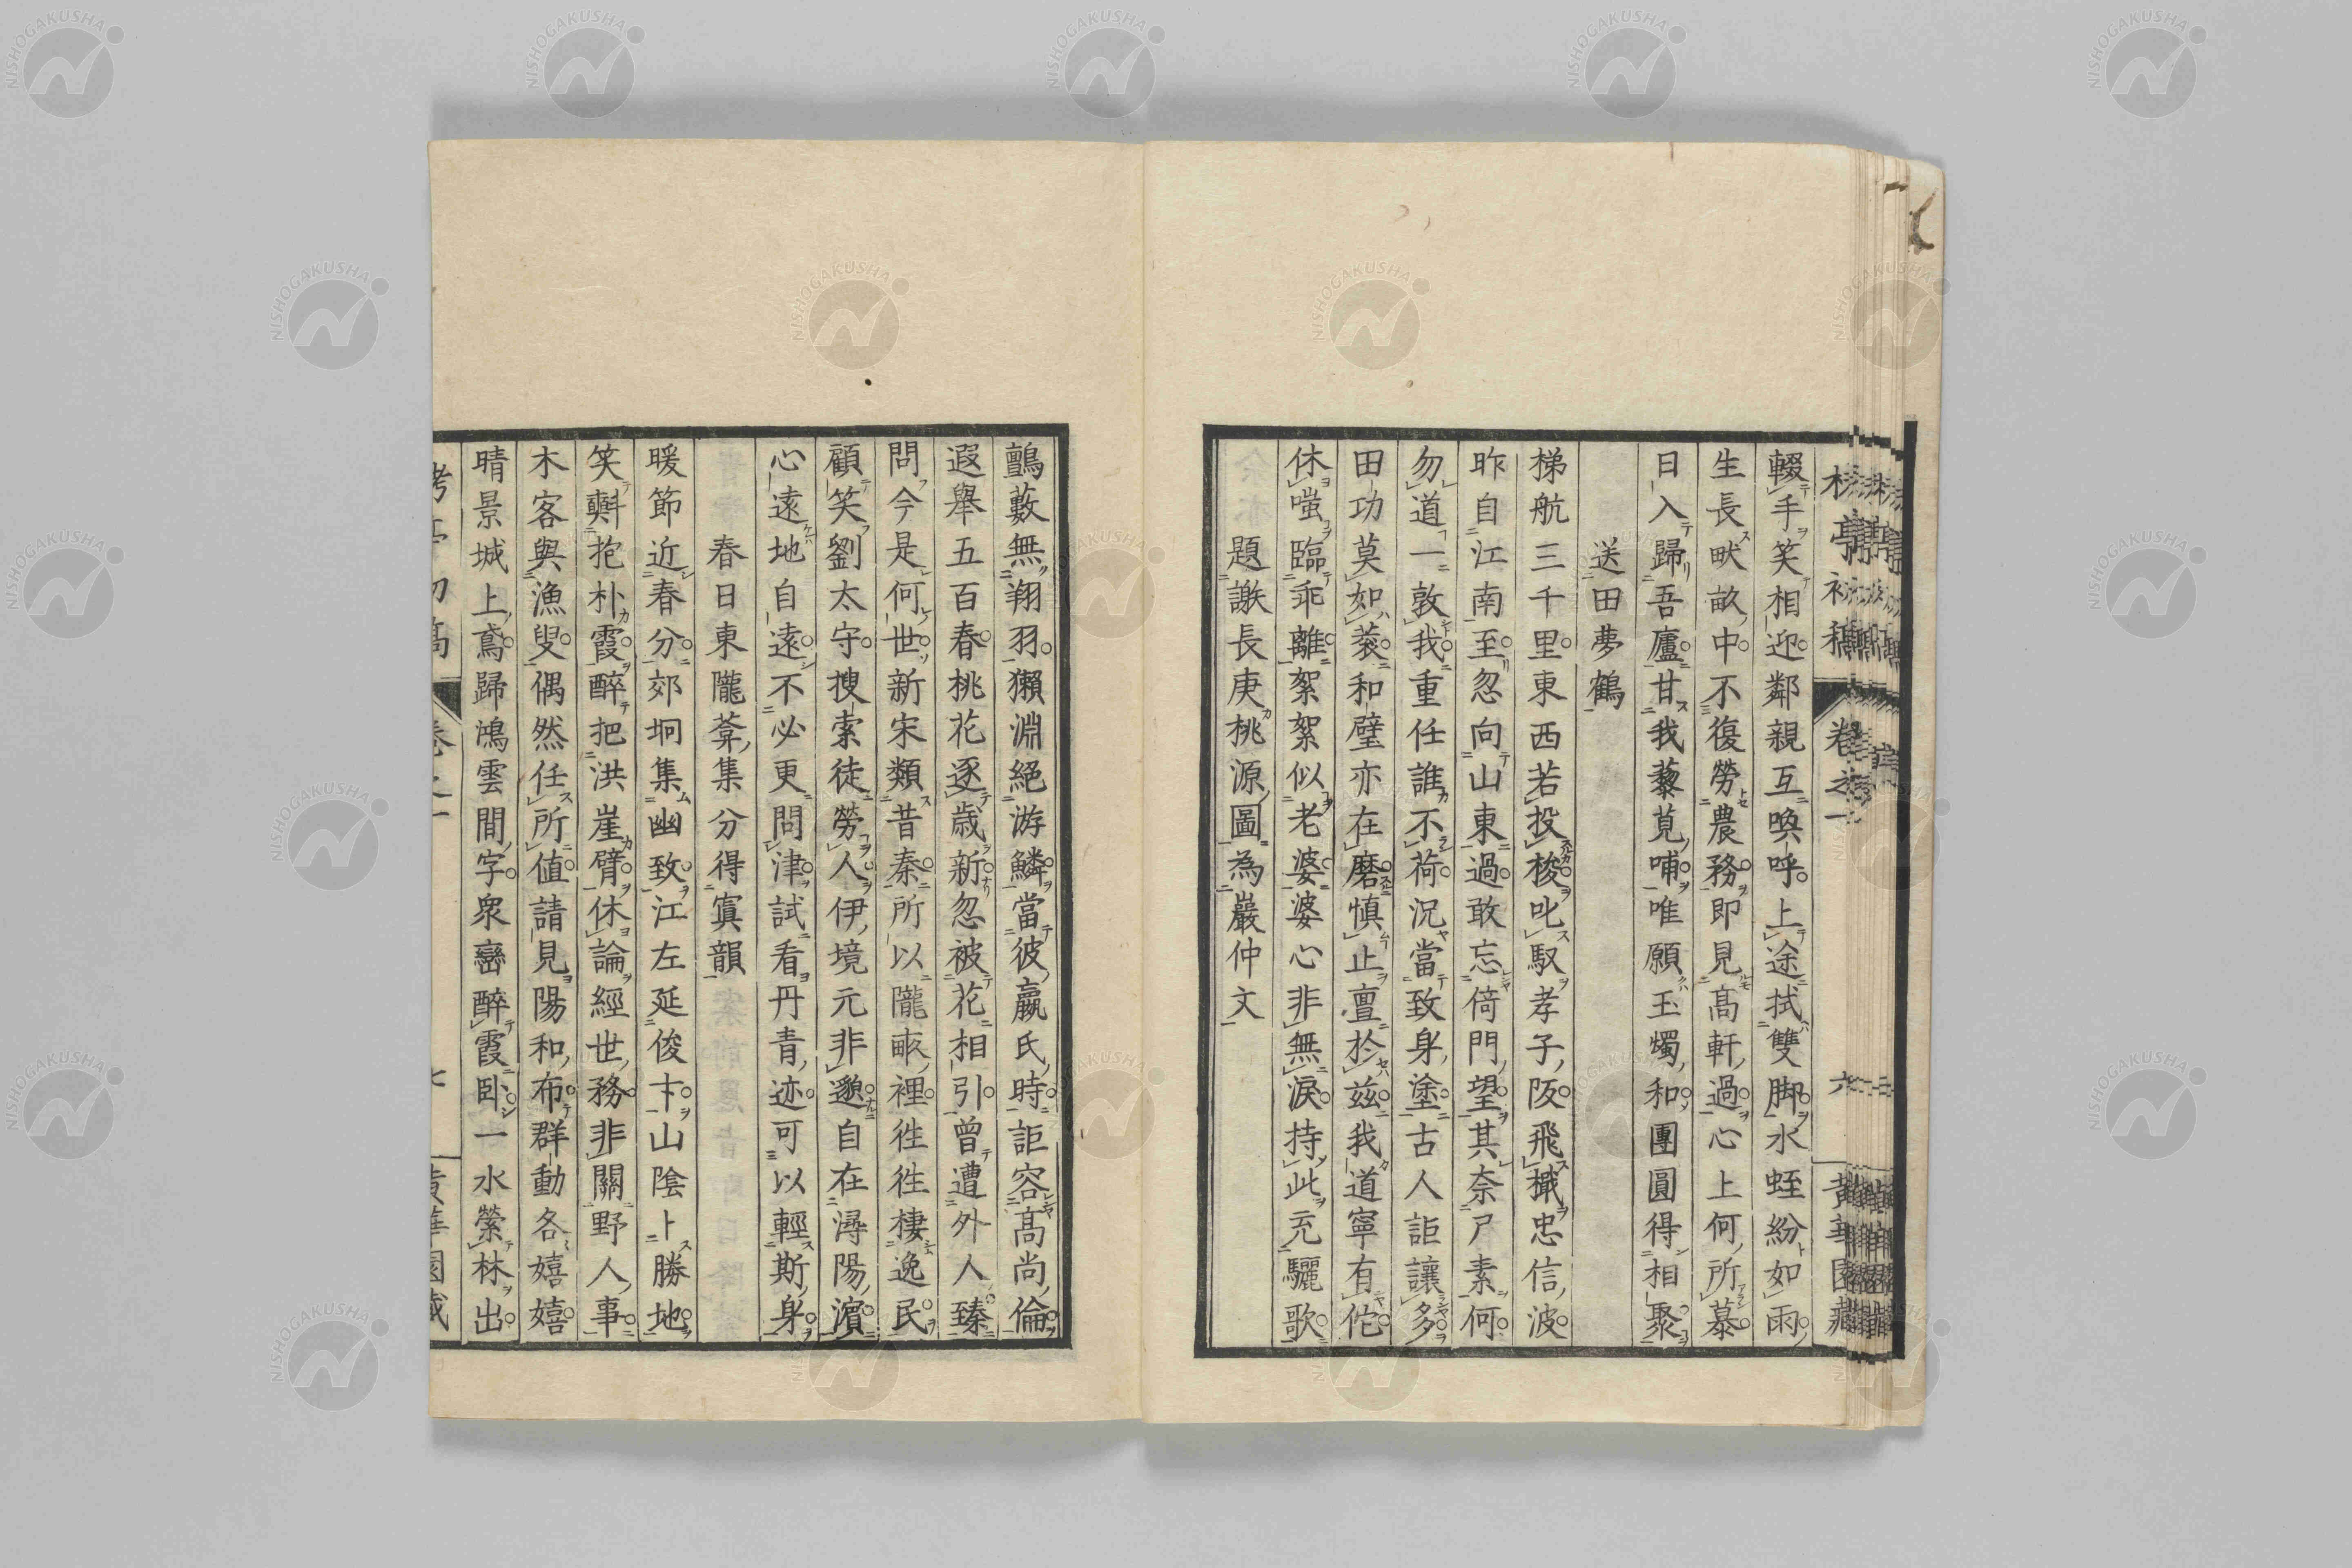 輟手笑相迎鄰親互喚呼上途拭雙脚水蛭紛如雨
生長畎畝中不復勞農務即見髙軒過心上何所慕
日入歸吾廬甘我藜莧哺唯願玉燭和團圓得相聚
送田夢鶴
梯航三千里東西若投梭叱馭孝子阪飛檝忠信波
昨自江南至忽向山東過敢忘倚門望其奈尸素何
勿道一敦我重任誰不荷況當致身塗古人詎讓多
田功莫如蔡和璧亦在磨慎止亶於茲我道寧有佗
休嗤臨乖離絮絮似老婆婆心非無淚持此充驪歌
題謙長庚桃源圖為巖仲文
鸇藪無翔羽獺淵絕游鱗當彼嬴氏時詎容髙尚倫
遐舉五百春桃花逐歳新忽被花相引曾遭外人臻
問今是何世新宋類昔秦所以隴畝裡徃徃棲逸民
顧笑劉太守搜索徒勞人伊境元非邈自在潯陽濵
心遠地自遠不必更問津試看丹青迹可以輕斯身
春日東隴葊集分得寘韻
暖節近春分郊坰集幽致江左延俊卞山陰卜勝地
笑斢抱朴霞醉把洪崖臂休論經世務非關野人事
木客與漁叟偶然任所值請見陽和布群動各嬉嬉
晴景城上鳶歸鴻雲間字衆巒醉霞卧一水縈林出
卷之一
六
NISHOGAKUSHA